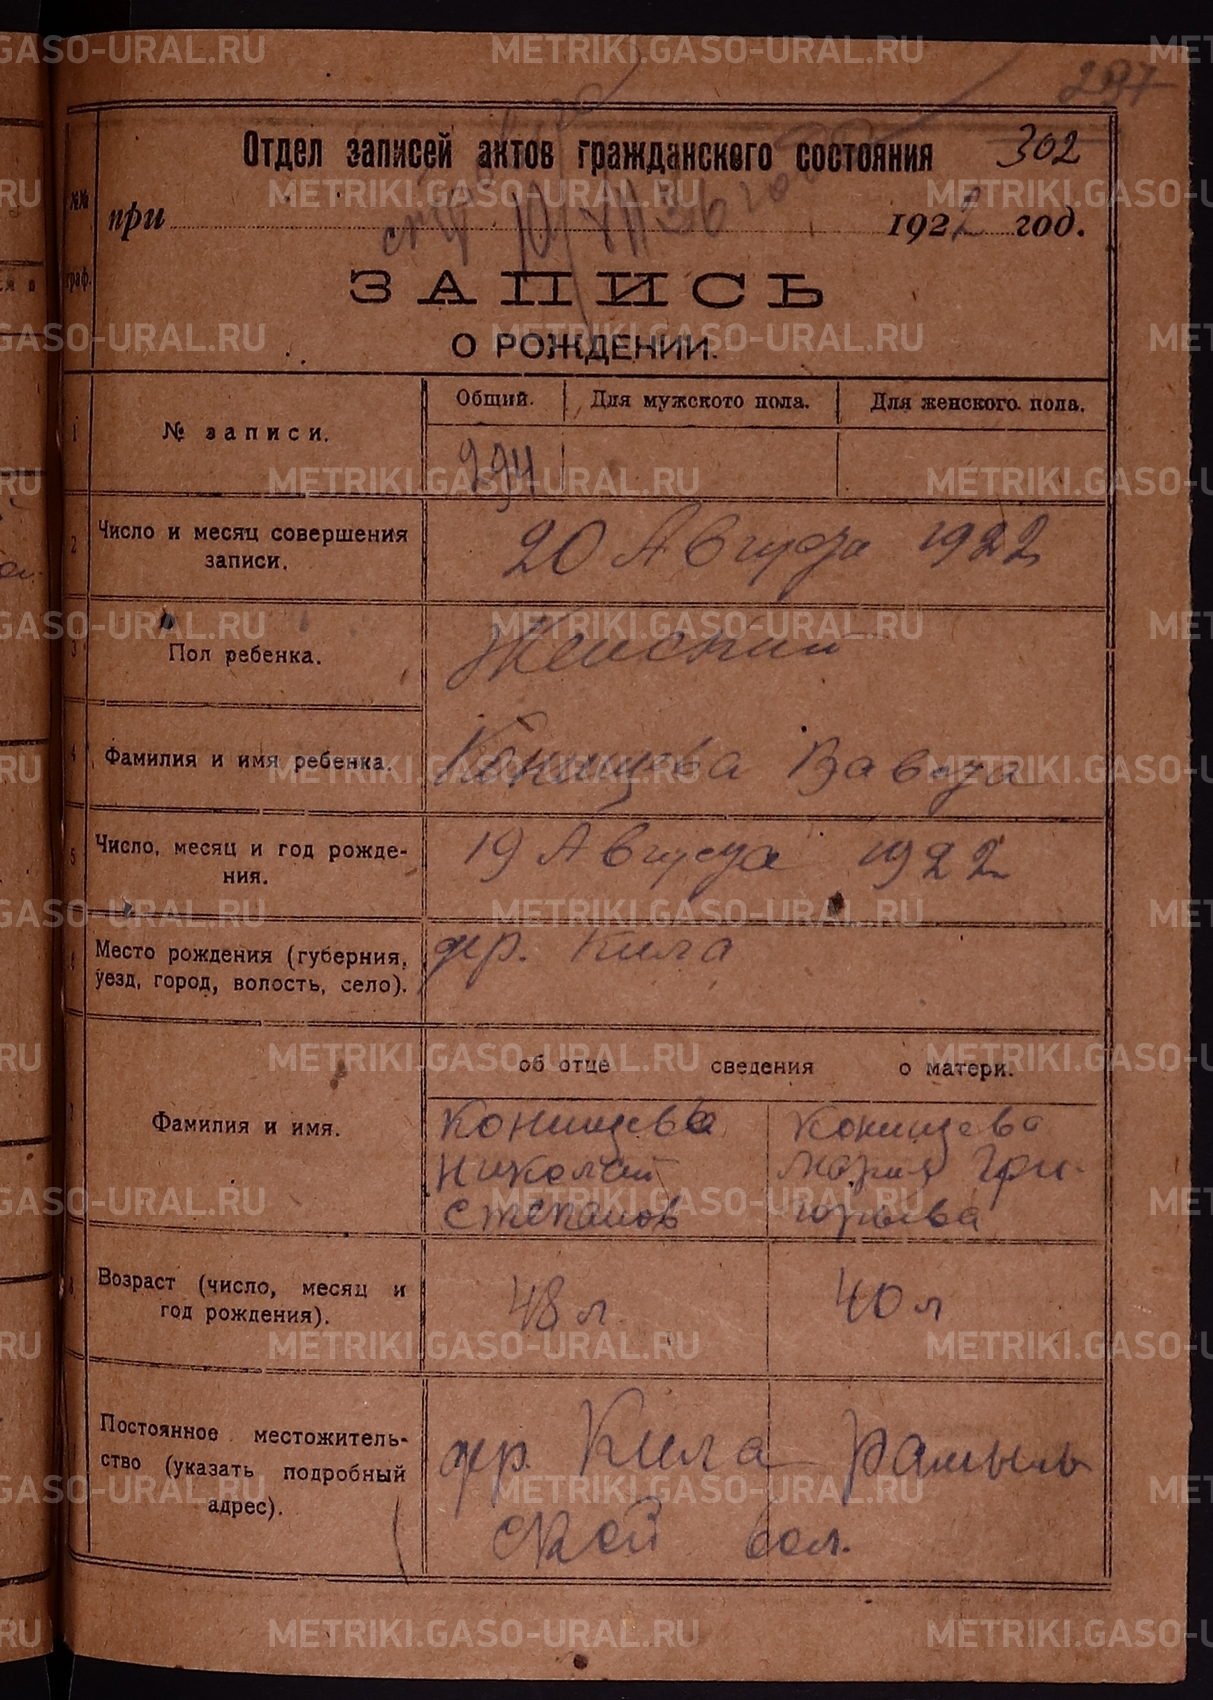 297
Отдел записей актов гражданского состояния 302
№№ граф.
при 1922 год.
ЗАПИСЬ
О РОЖДЕНИИ.
Общий. Для мужского пола. Для женского пола.
1 № записи. 294
2 Число и месяц совершения записи. 20 Августа 1922
3 Пол ребенка. Женский
4 Фамилия и имя ребенка. Конищева
5 Число, месяц и год рожде-
ния. 19 Августа 1922
Место рождения (губерния, дер. Кила
уезд, город, волость, село).
об отце сведения о матери.
Фамилия и имя.
Конищева Конищева
Николай Мария Гри-
Степанов горьева
Возраст (число, месяц и
год рождения). 48 л. 40 л
Постоянное местожитель-
ство (указать подробный
адрес).
дер. Кила Рамыль
ской вол.
METRIKI.GASO-URAL.RU